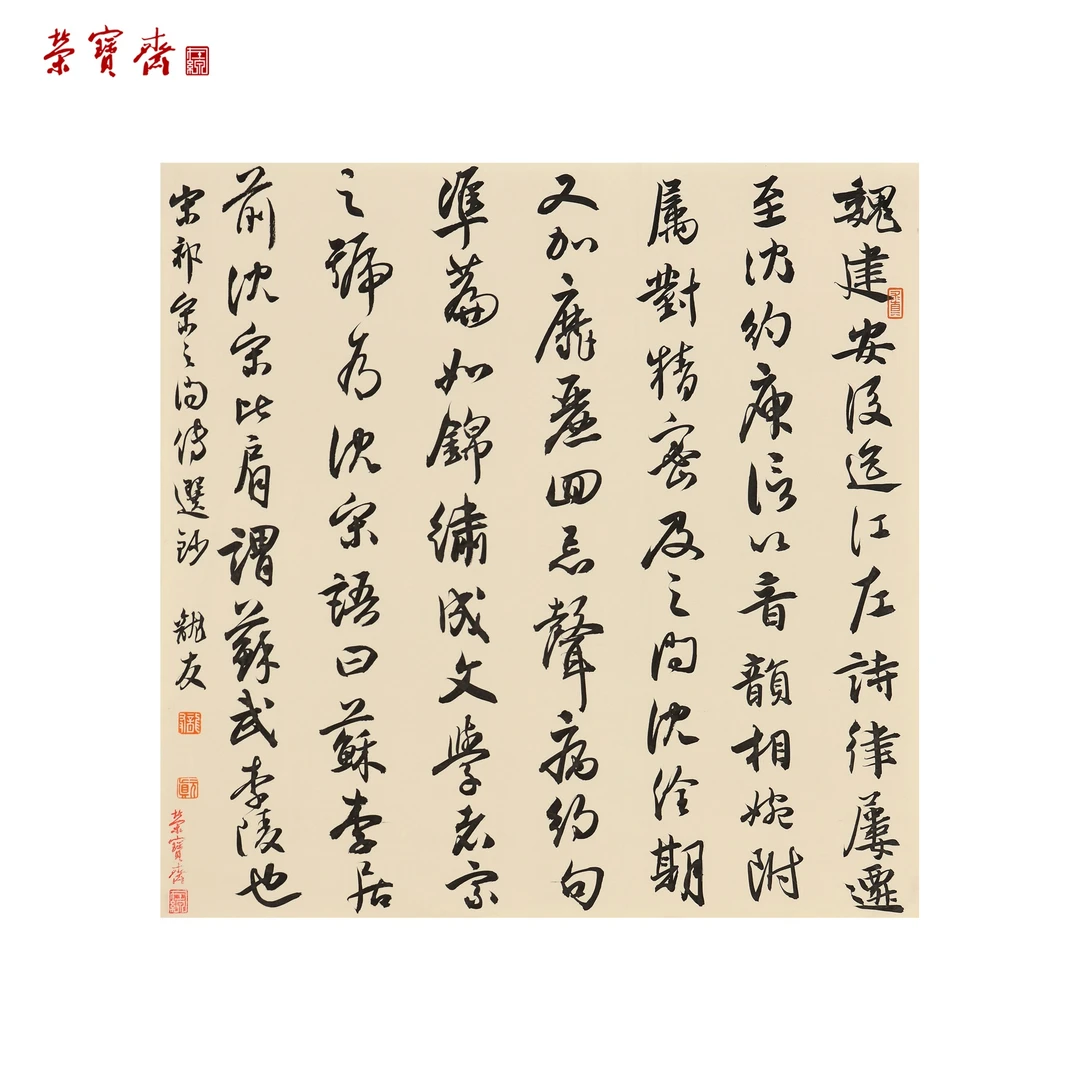 榮寶齋
魏建安後迄江左詩律屢遷
至沈約庾信以音韻相婉附
属對精密及之問沈佺期
又加靡麗回忌聲病約句
準篇如錦繡成文學者宗
之號為沈宋語曰蘇李居
前沈宋比肩謂蘇武李陵也
宋祁宋之問傳選鈔 龍友
榮寶齋